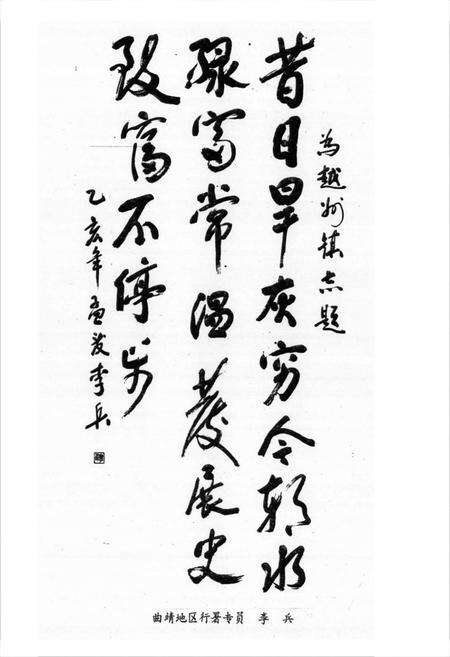 为越州镇志题
昔日旱灰穷今朝水
绿富常温发展史
致富不停步
乙亥年孟夏李兵
曲靖地区行署专员 李 兵